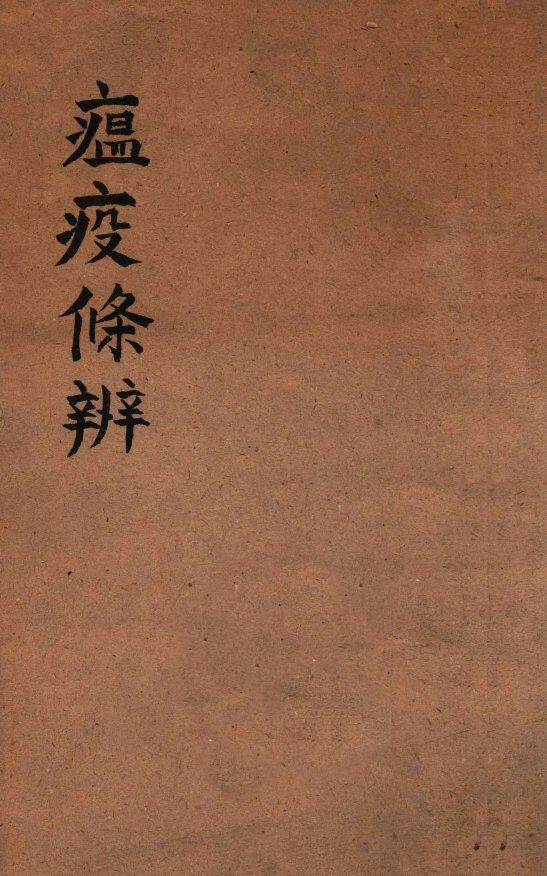 瘟疫條辨